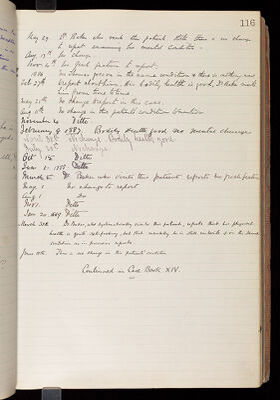 116
May 29 Dr Baker who visits this patient states there is no change
to report concerning his mental condition.
Aug 19th No change
Nov 16th No fresh feature to report
1886 He remains just in the same condition & there is nothing new
Feb 27th to report about him. His bodily health is good. Dr Baker visits
him from time to time
May 25th No change to report in this case.
Aug 11th No change in this patient's condition to mention
November 20 Ditto
February 9 1887. Bodily health good no mental change
April 30th No change. Bodily health good
July 20th No change
Oct 15 Ditto
Jany 2 1888 Ditto
March 5 Dr Baker who visits this patient reports no fresh feature
May 1 No change to report
Aug 1 Do
Nov 1. Ditto
Jan 20 1889 Ditto
March 30th Dr Baker, who systematically visits this patient, reports that his physical
health is quite satisfactory, but that mentally he is still imbecile & in the same
condition as in previous reports
June 18th There is no change in this patient's condition
Continued in Case Book XIV.